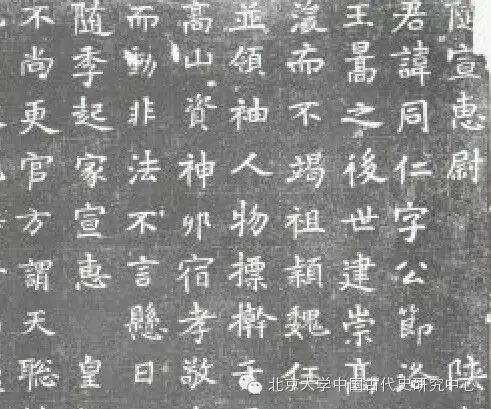 随宣惠尉 陝
君諱同仁字公節洛
王暠之後世建崇高
浚而不竭祖穎魏任
並領袖人物摽
高山資神卯宿孝敬
而動非法不言懸日
随季起家宣惠 皇
不尚更官方謂天聡
北京大学中国古代史研究中心